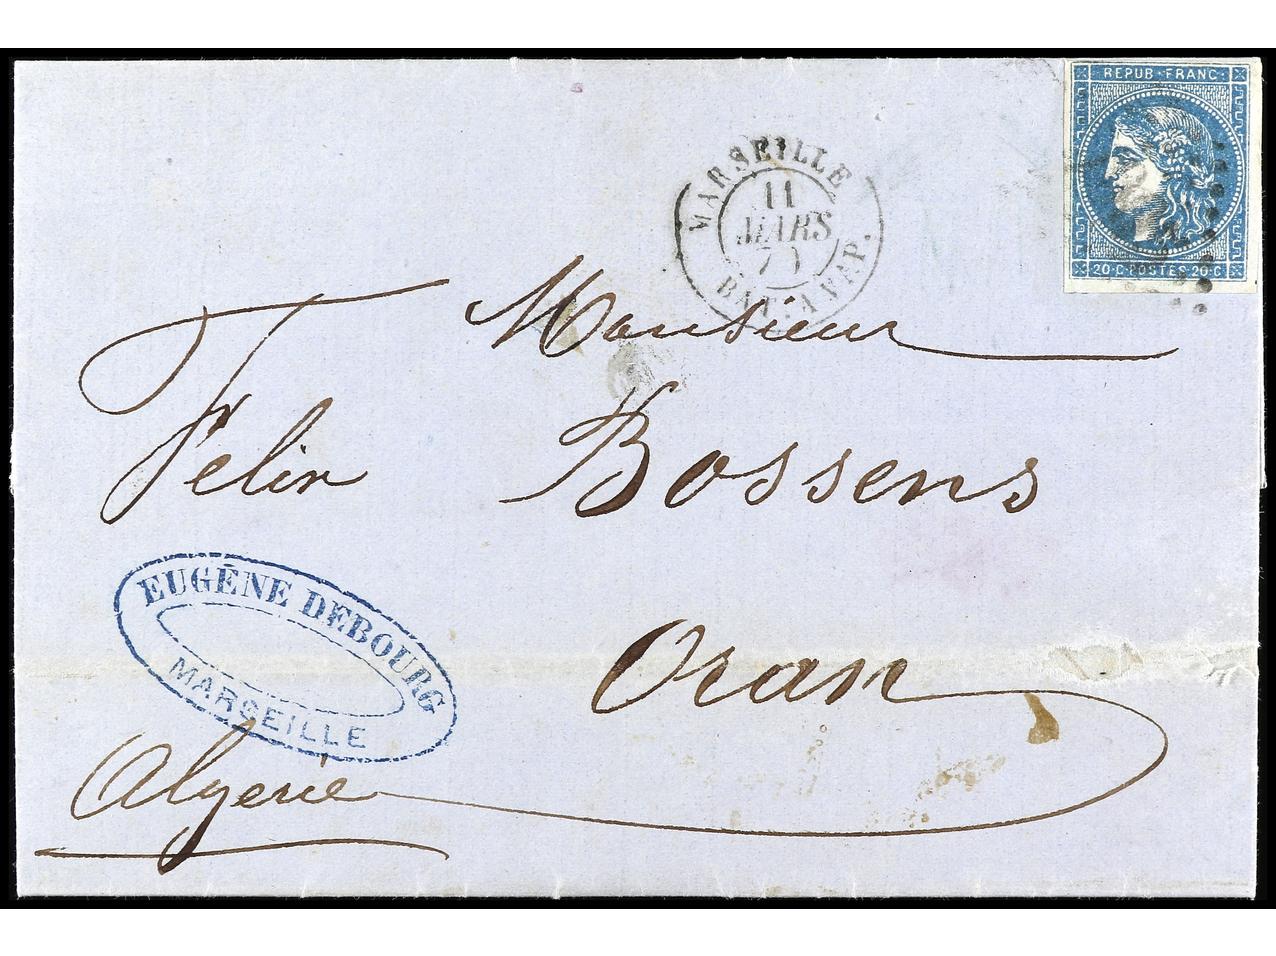 REPUB·FRANC·
20·C·POSTES·20·C
MARSEILLE
11
MARS
BAT·A VAP.
Monsieur
Felix Bossens
EUGÈNE DEBOURG
MARSEILLE
Oran
Algerie